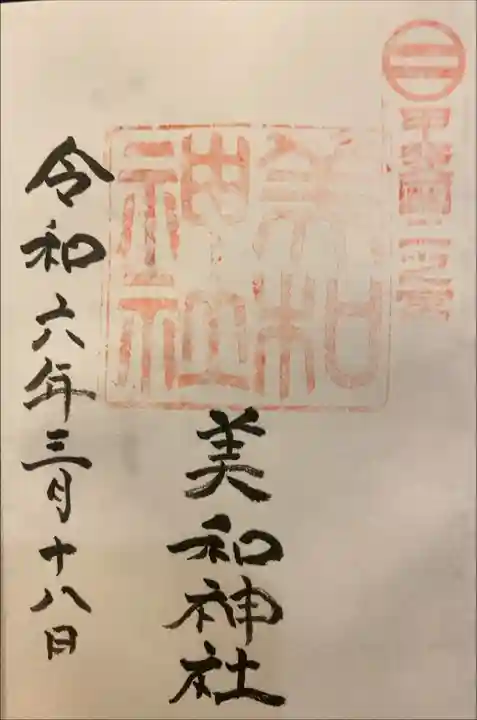 二
甲斐國二之宮
美和
神社
美和神社
令和六年三月十八日